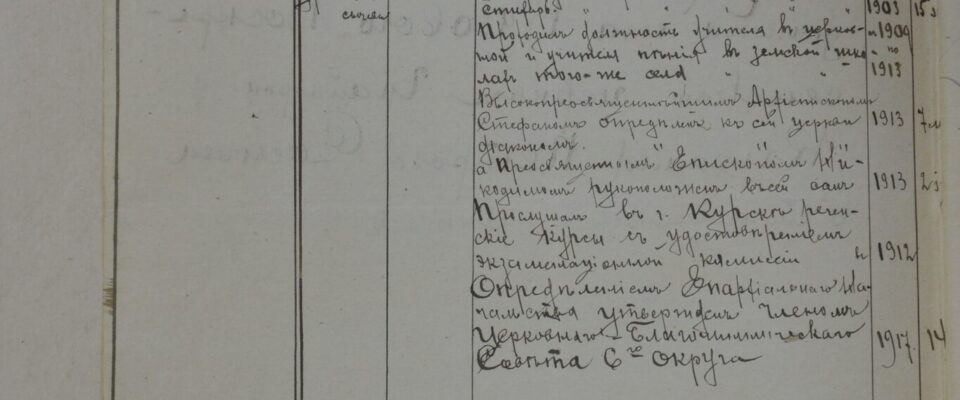 сычева
стихарь " " " " 1903 15
Проходилъ должность учителя въ церков- и 1909
ной и учителя пѣнія въ земской шко- по
лахъ того-же села " " 1913
Высокопреосвященнѣйшимъ Архіепископомъ
Стефаномъ опредѣленъ къ сей церкви 1913 7
діакономъ.
а Преосвященнымъ Епископомъ Ни-
кодимомъ рукоположенъ въ сей санъ 1913 2
Прослушалъ въ г. Курскѣ
скіе курсы съ удостовѣреніемъ
экзаменаціонной коммиссіи 1912
Опредѣленіемъ Епархіальнаго На-
чальства утвержденъ членомъ
Церковнаго-Благочинническаго
Совѣта 6го округа 1917. 14